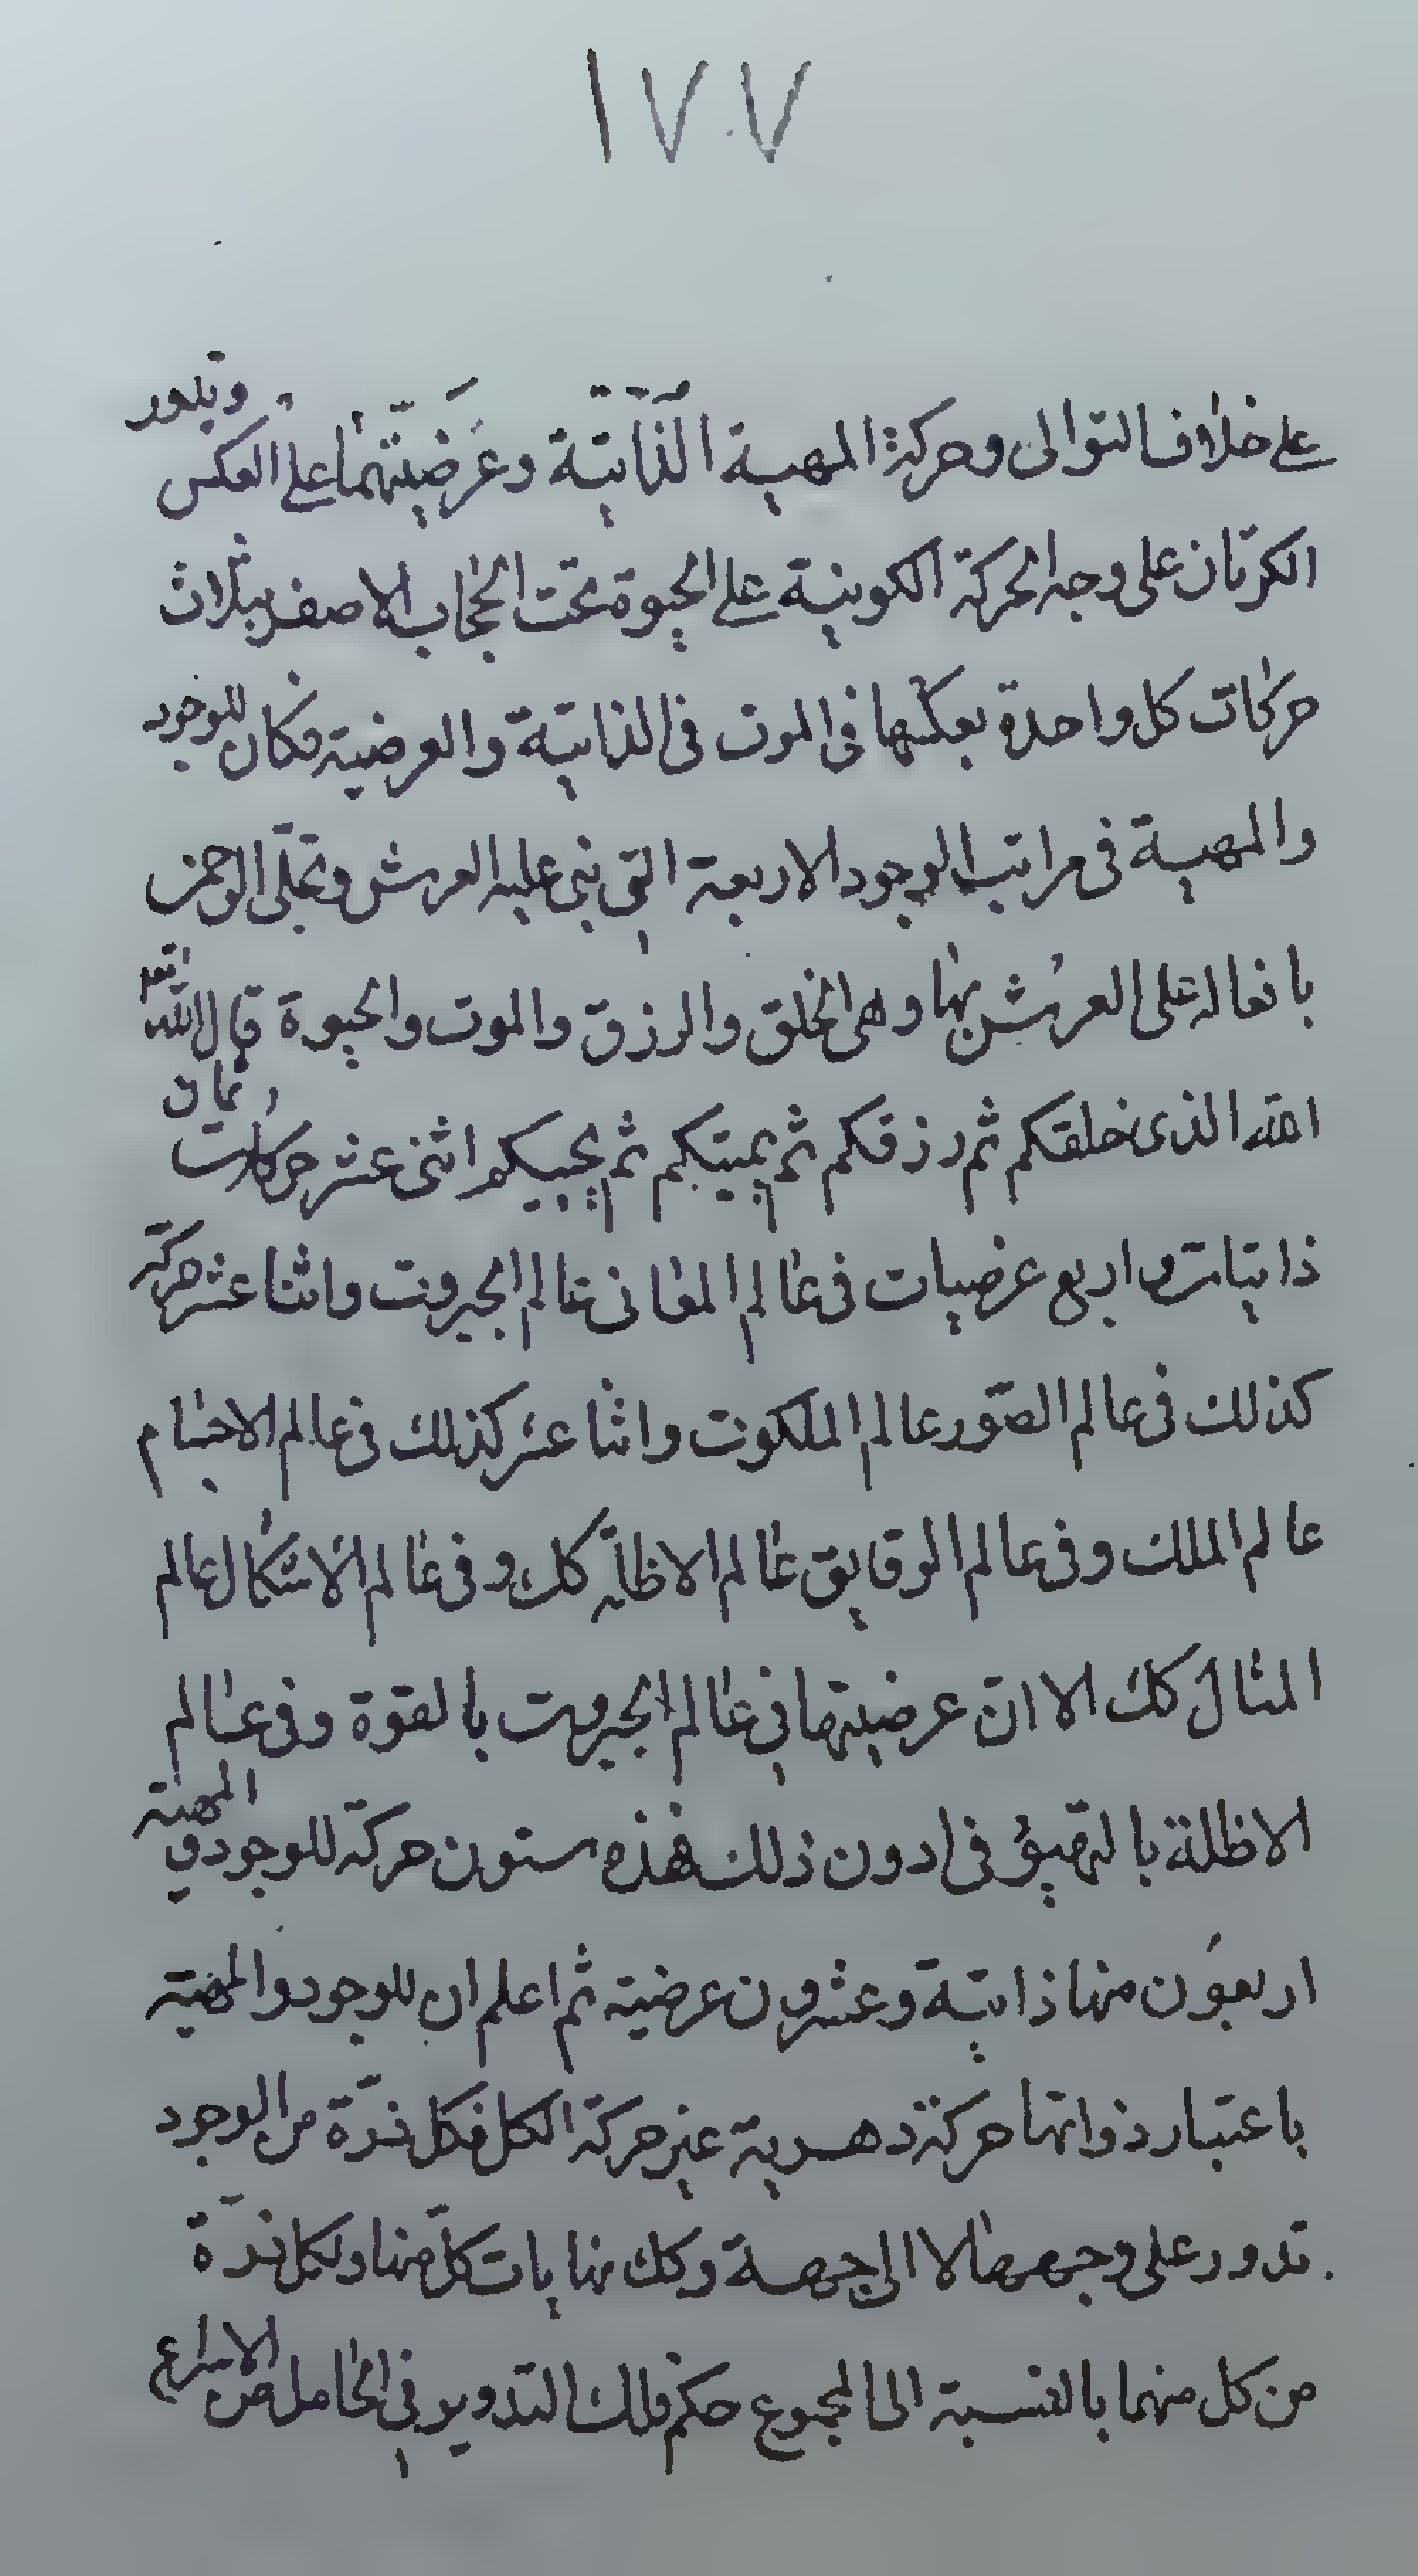 ١٧٧
على خلاف التوالى وحركة المهية الذاتية وعرضيتهما على العكس وتدور
الكرتان على وجه الحركة الكونية على الحيوة تحت الحجاب الاصفر بثلاث
حركات كل واحدة بعكسها فى الموت فى الذاتية والعرضية فكان للوجود
والمهية فى مراتب الوجود الاربعة التى بنى عليه العرش وتجلى الرحمن
بافعاله على العرش بها وهى الخلق والرزق والموت والحيوة قال الله تعا
الله الذى خلقكم ثم رزقكم ثم يميتكم ثم يحييكم اثنى عشر حركات ثمان
ذاتيات واربع عرضيات فى عالم المعانى عالم الجبروت واثنا عشر حركة
كذلك فى عالم الصور عالم الملكوت واثنا عشر كذلك فى عالم الاجسام
عالم الملك وفى عالم الرقايق عالم الاظلة كك وفى عالم الاشكال عالم
المثال كك الا ان عرضيتها فى عالم الجبروت بالقوة وفى عالم
الاظلة بالتهيؤ فى ادون ذلك فهذه ستون حركة للوجود و المهية
اربعون منها ذاتية وعشرون عرضية ثم اعلم ان للوجود والمهية
باعتبار ذواتها حركة دهرية غير حركة الكل فكل ذرة من الوجود
تدور على وجهها لا الى جهة وكك نهايات كل منها ولكل ذرة
من كل منهما بالنسبة الى المجموع حكم فلك التدوير فى الحامل من الاسراع